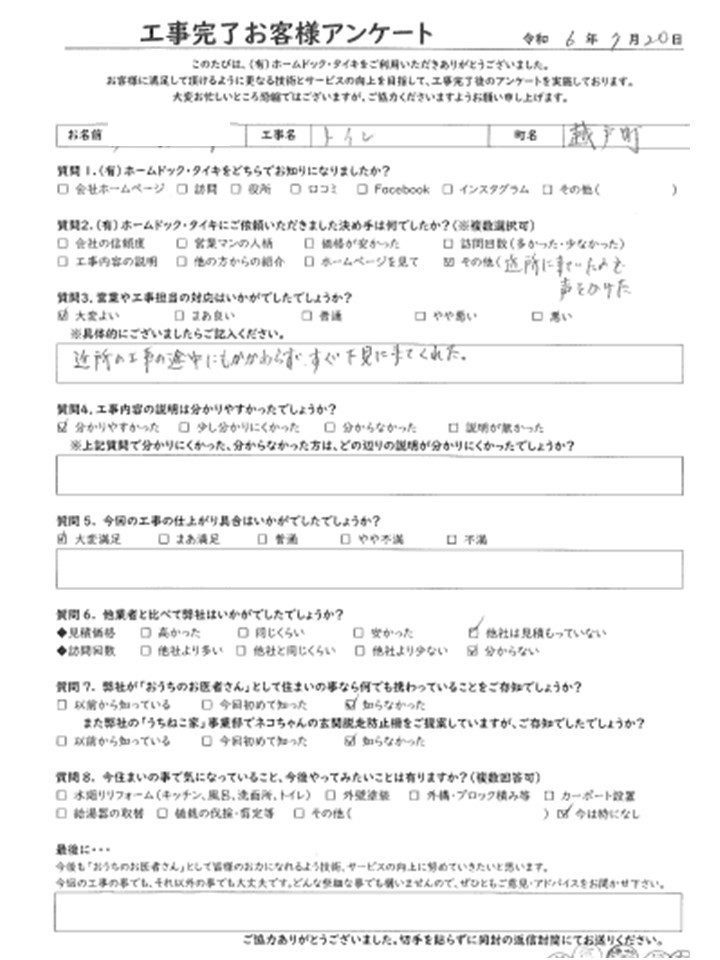 工事完了お客様アンケート
令和 6 年 9 月 20 日
このたびは、(有)ホームドック・タイキをご利用いただきありがとうございました。
お客様に満足して頂けるように更なる技術とサービスの向上を目指して、工事完了後のアンケートを実施しております。
大変お忙しいところ恐縮ではございますが、ご協力くださいますようお願い申し上げます。
お名前 工事名 トイレ 町名 越戸町
質問1.(有)ホームドック・タイキをどちらでお知りになりましたか?
☐ 会社ホームページ ☐ 訪問 ☐ 役所 ☐ 口コミ ☐ Facebook ☐ インスタグラム ☐ その他( )
質問2.(有)ホームドック・タイキにご依頼いただきました決め手は何でしたか?(※複数選択可)
☐ 会社の信頼度 ☐ 営業マンの人柄 ☐ 価格が安かった ☐ 訪問回数(多かった・少なかった)
☐ 工事内容の説明 ☐ 他の方からの紹介 ☐ ホームページを見て ☑ その他(近所に来ていたので
声をかけた
質問3.営業や工事担当の対応はいかがでしたでしょうか?
☑ 大変よい ☐ まあ良い ☐ 普通 ☐ やや悪い ☐ 悪い
※具体的にございましたらご記入ください。
近所の工事の途中にもかかわらず、すぐ下見に来てくれた。
質問4.工事内容の説明は分かりやすかったでしょうか?
☑ 分かりやすかった ☐ 少し分かりにくかった ☐ 分からなかった ☐ 説明が無かった
※上記質問で分かりにくかった、分からなかった方は、どの辺りの説明が分かりにくかったでしょうか?
質問5.今回の工事の仕上がり具合はいかがでしたでしょうか?
☑ 大変満足 ☐ まあ満足 ☐ 普通 ☐ やや不満 ☐ 不満
質問6.他業者と比べて弊社はいかがでしたでしょうか?
◆見積価格 ☐ 高かった ☐ 同じくらい ☐ 安かった ☑ 他社は見積もっていない
◆訪問回数 ☐ 他社より多い ☐ 他社と同じくらい ☐ 他社より少ない ☑ 分からない
質問7.弊社が「おうちのお医者さん」として住まいの事なら何でも携わっていることをご存知でしょうか?
☐ 以前から知っている ☐ 今回初めて知った ☑ 知らなかった
また弊社の「うちねこ家」事業部でネコちゃんの玄関脱走防止柵をご提案していますが、ご存知でしたでしょうか?
☐ 以前から知っている ☐ 今回初めて知った ☑ 知らなかった
質問8.今住まいの事で気になっていること、今後やってみたいことは有りますか?(複数回答可)
☐ 水廻りリフォーム(キッチン、風呂、洗面所、トイレ) ☐ 外壁塗装 ☐ 外構・ブロック積み等 ☐ カーポート設置
☐ 給湯器の取替 ☐ 植栽の伐採・剪定等 ☐ その他( ) ☑ 今は特になし
最後に・・・
今後も「おうちのお医者さん」として皆様のお力になれるよう技術、サービスの向上に努めていきたいと思います。
今回の工事の事でも、それ以外の事でも大丈夫です。どんな些細な事でも構いませんので、ぜひともご意見・アドバイスをお聞かせ下さい。
ご協力ありがとうございました。切手を貼らずに同封の返信封筒にてお送りください。